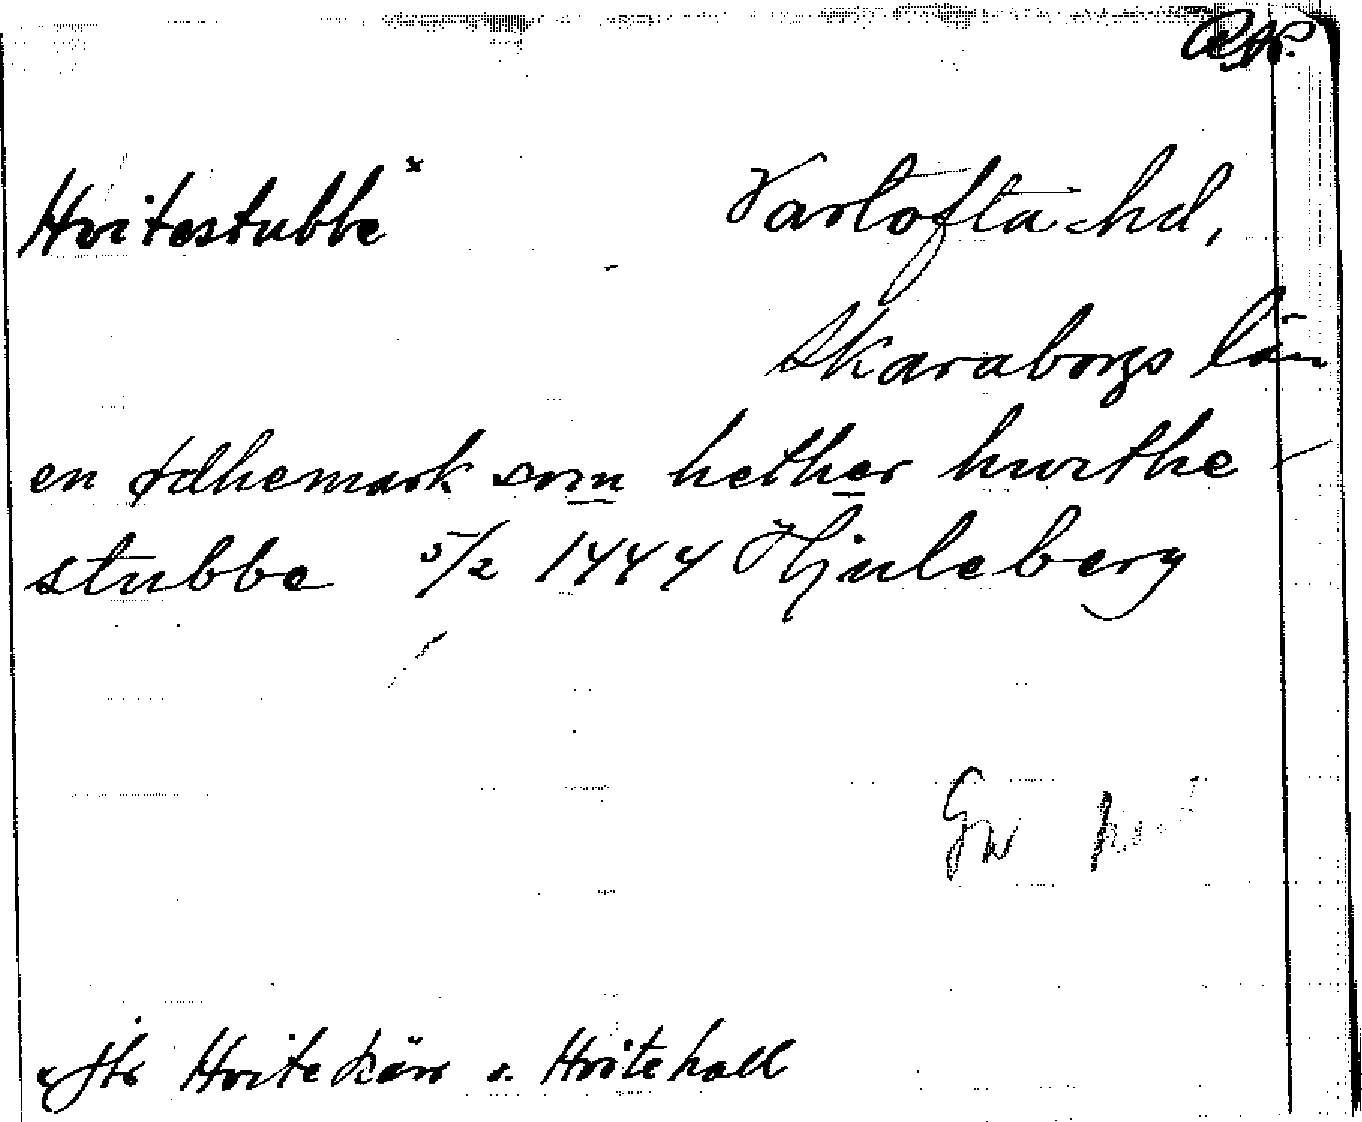 Hvitestubbe x
Vartofta hd,
Skaraborgs län
en ødhemark som hether hvithe
stubbe 5/2 1444 Hjuleberg
x Jfr Hvitekärr o. Hvitehall